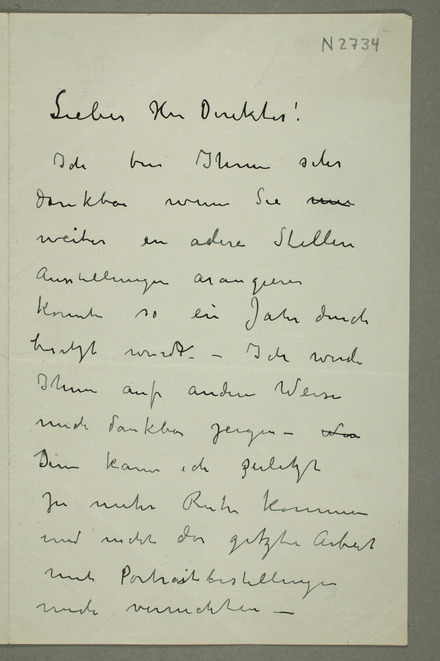 N 2734
Lieber Herr Direktor!
Ich bin Ihnen sehr
dankbar wenn Sie
weiter en adere Stellen
Ausstellungen arangieren
konnte so ein Jahr durch
besetzt wurde – Ich werde
Ihnen auf andere Weise
mich dankbar zeigen –
Denn kann ich zuletzt
zu mehr Ruhe kommen
und nicht das getzte Arbeit
mit Portraitbestellungen
mich vernichten –